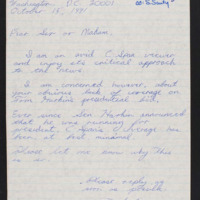 Washington D.C. 20001
October 15, 1991
Dear Sir or Madam:
I am an avid C-Span viewer
and enjoy its critical approach
to the news.
I am concerned however, about
your obvious lack of coverage on
Tom Harkin's presidential bid.
Ever since Sen. Harkin announced
that he was running for
president, C-Span's coverage has
been at best minimal.
Please let me know why this
is so.
Please reply as